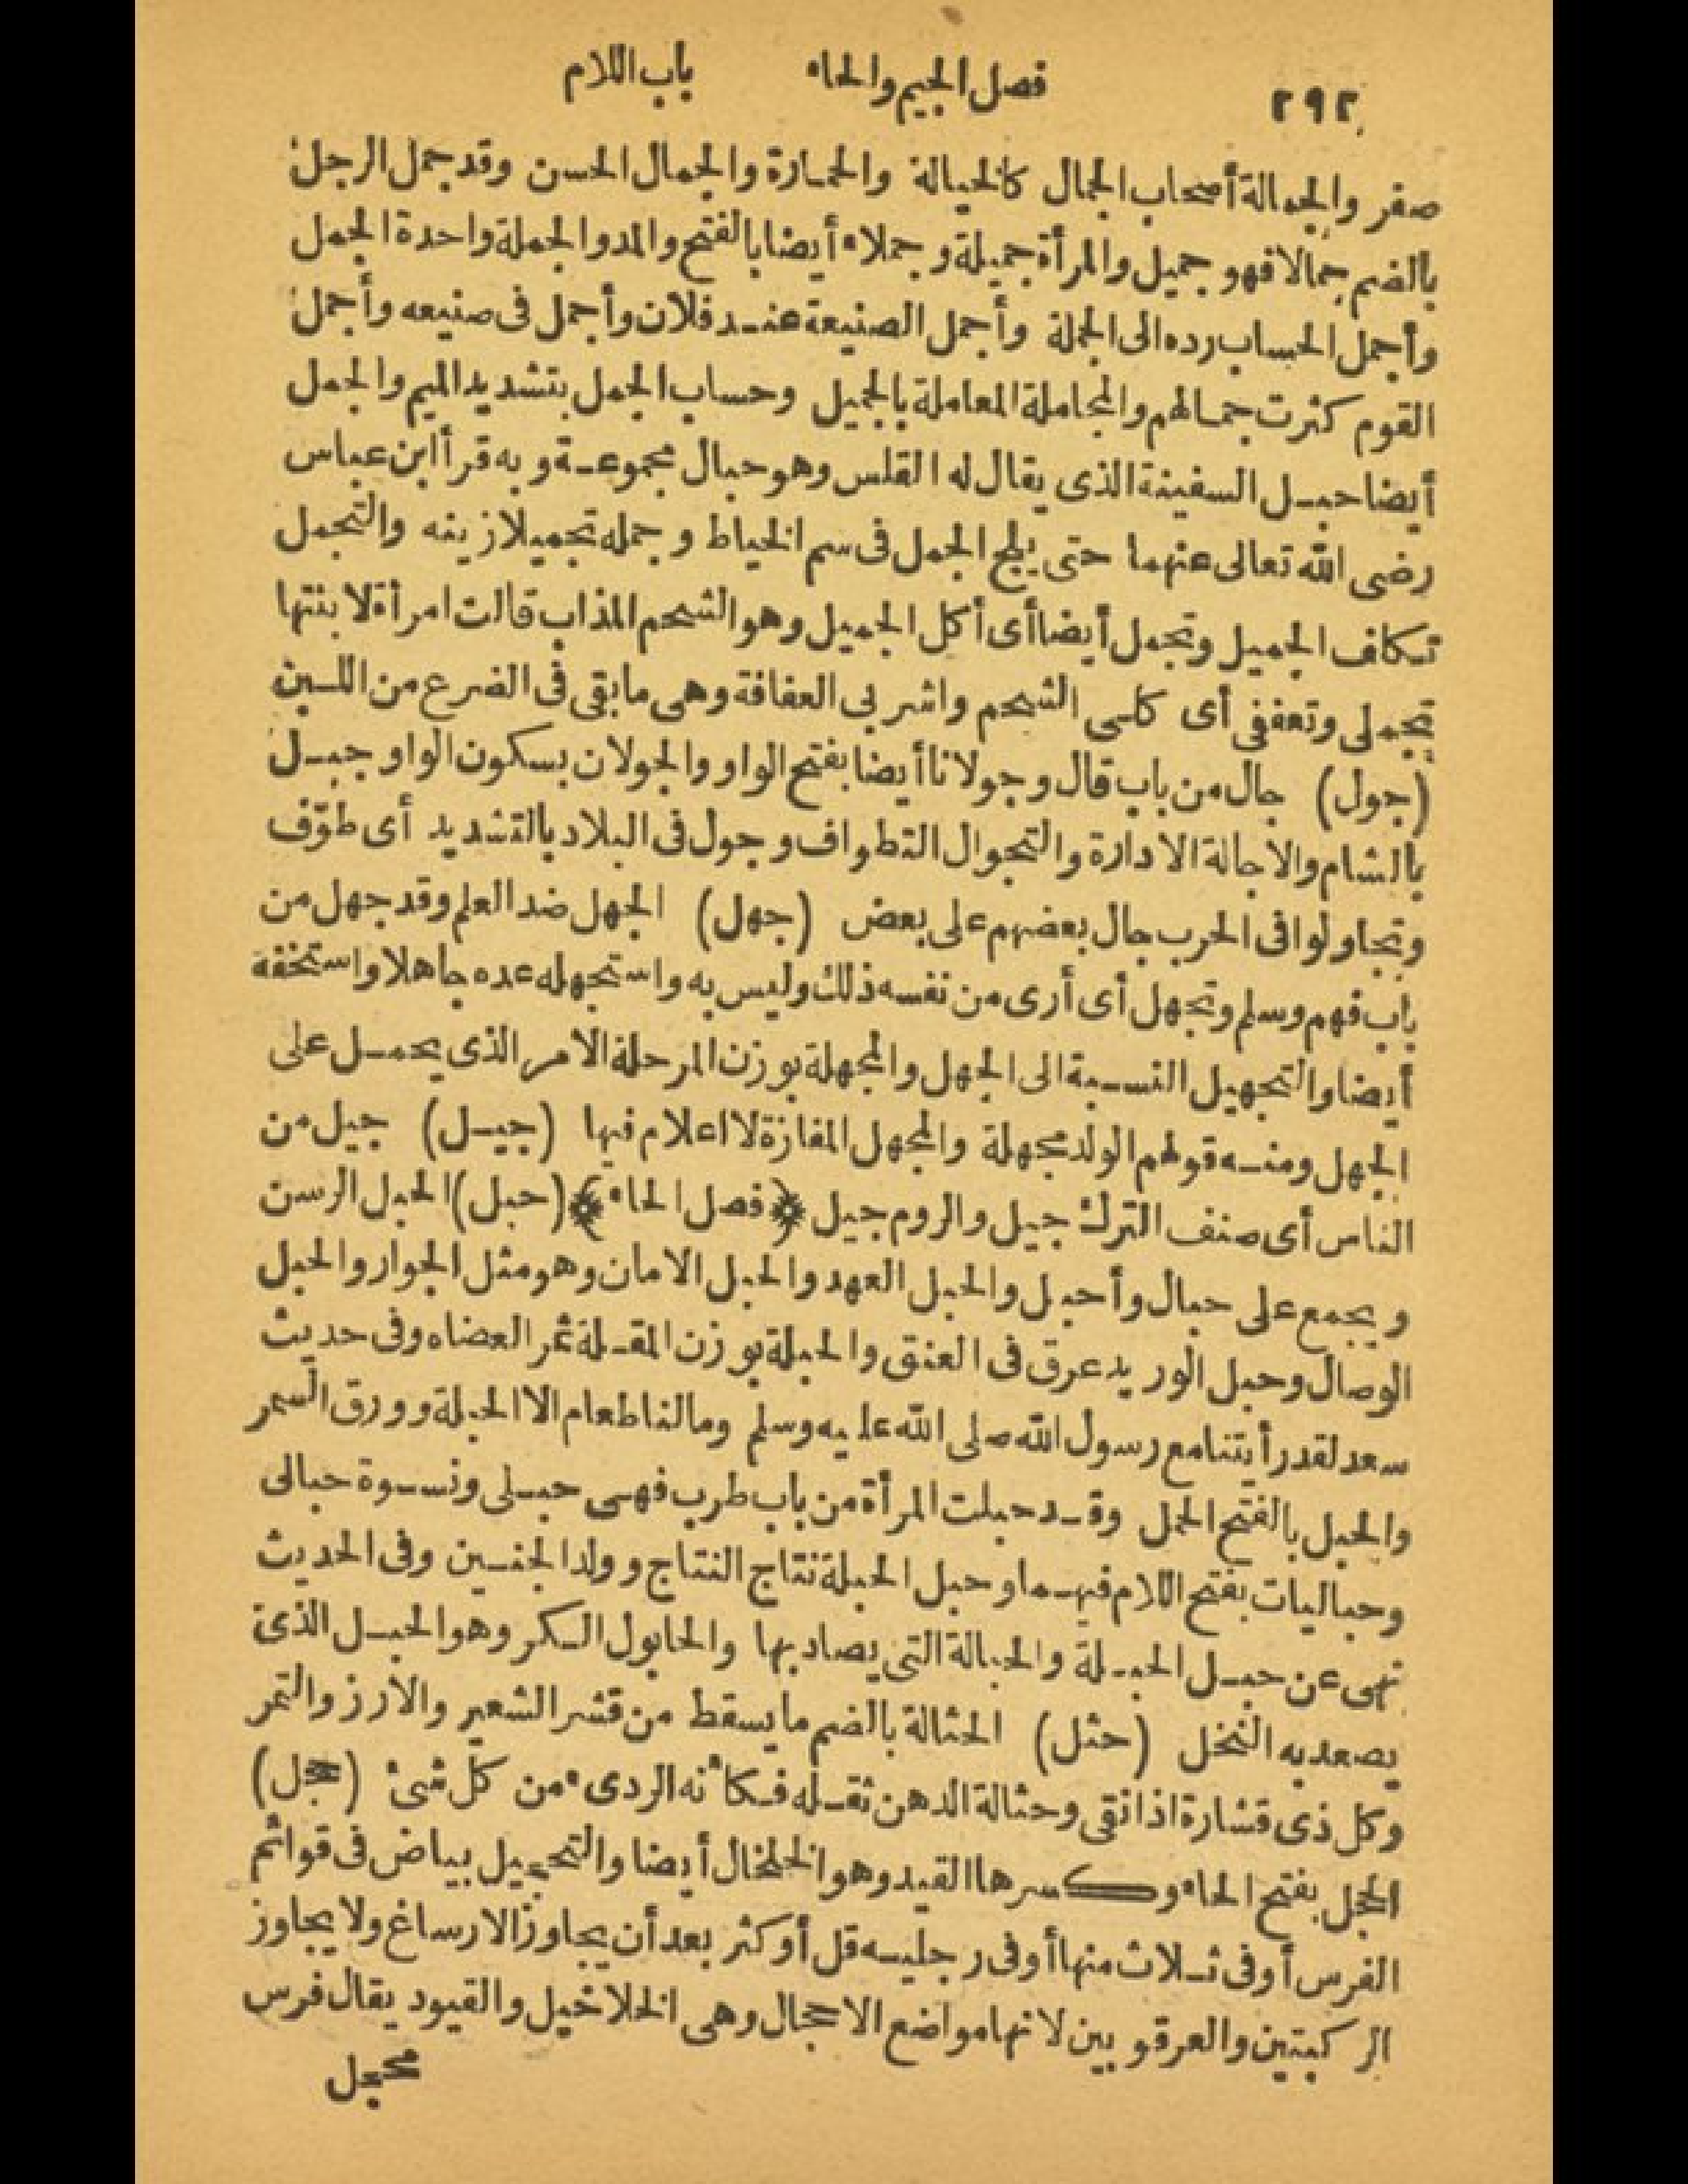 ٢٩٢ فصل الجيم والحاء باب اللام
صفر والجمالة أصحاب الجمال كالخيالة والحمارة والجمال الحسن وقد جمل الرجل
بالضم جمالا فهو جميل والمرأة جميلة وجملاء أيضا بالفتح والمد والجملة واحدة الجمل
وأجمل الحساب رده الى الجملة وأجمل الصنيعة عند فلان وأجمل فى صنيعه وأجمل
القوم كثرت جمالهم والمجاملة المعاملة بالجميل وحساب الجمل بتشديد الميم والجمل
أيضا حبل السفينة الذى يقال له القلس وهو حبال مجموعة وبه قرأ ابن عباس
رضى الله تعالى عنهما حتى يلج الجمل فى سم الخياط وجمله تجميلا زينه والتجمل
تكلف الجميل وتجمل أيضا أى أكل الجميل وهو الشحم المذاب قالت امرأة لابنتها
تجملى وتعففى أى كلى الشحم واشربى العفافة وهى ما بقى فى الضرع من اللبن
(جول) جال من باب قال وجولانا أيضا بفتح الواو والجولان بسكون الواو جبل
بالشام والاجالة الادارة والتجوال التطواف وجول فى البلاد بالتشديد أى طوّف
وتجاولوا فى الحرب جال بعضهم على بعض (جهل) الجهل ضد العلم وقد جهل من
باب فهم وسلم وتجهل أى أرى من نفسه ذلك وليس به واستجهله عده جاهلا واستخفه
أيضا والتجهيل النسبة الى الجهل والمجهلة بوزن المرحلة الامر الذى يحمل على
الجهل ومنه قولهم الولد مجهلة والمجهل المفازة لا اعلام فيها (جيل) جيل من
الناس أى صنف الترك جيل والروم جيل ﴿فصل الحاء﴾ (حبل) الحبل الرسن
ويجمع على حبال وأحبل والحبل العهد والحبل الامان وهو مثل الجوار والحبل
الوصال وحبل الوريد عرق فى العنق والحبلة بوزن المقلة ثمر العضاه وفى حديث
سعد لقد رأيتنا مع رسول الله صلى الله عليه وسلم ومالنا طعام الا الحبلة وورق السمر
والحبل بالفتح الحمل وقد حبلت المرأة من باب طرب فهى حبلى ونسوة حبالى
وحباليات بفتح اللام فيهما وحبل الحبلة نتاج النتاج وولد الجنين وفى الحديث
نهى عن حبل الحبلة والحبالة التى يصاد بها والحابول الكر وهو الحبل الذى
يصعد به النخل (حثل) الحثالة بالضم ما يسقط من قشر الشعير والارز والتمر
وكل ذى قشارة اذا نقى وحثالة الدهن ثفله فكأنه الردىء من كل شئ (حجل)
الحجل بفتح الحاء وكسرها القيد وهو الخلخال أيضا والتحجيل بياض فى قوائم
الفرس أو فى ثلاث منها أو فى رجليه قل أو كثر بعد أن يجاوز الارساغ ولا يجاوز
الركبتين والعرقوبين لانها مواضع الاحجال وهى الخلاخيل والقيود يقال فرس
محجل